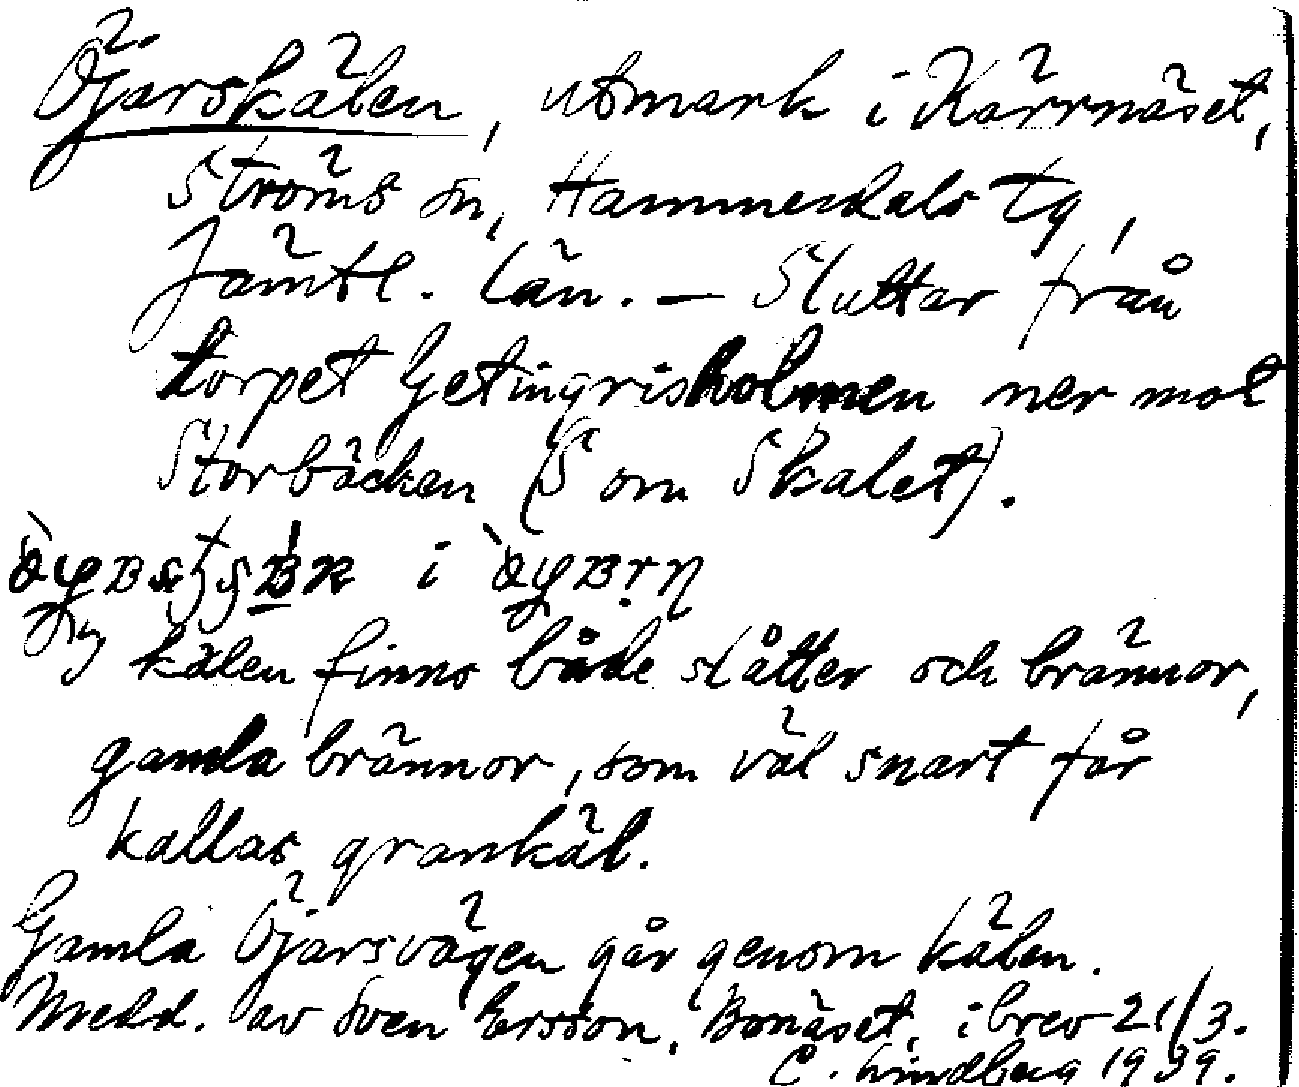 Öjarskälen, utmark i Kärrnäset,
Ströms sn, Hammerdals tg,
Jämtl. län. — Sluttar från
torpet Getingrisholmen ner mot
Storbäcken (S om Skalet).
i
kälen finns både slåtter och brännor,
gamla brännor, som väl snart får
kallas grankäl.
Gamla Öjarsvägen går genom kälen.
Medd. av Sven Ersson, Bonäset, i brev 21/3.
C. Lindberg 1939.